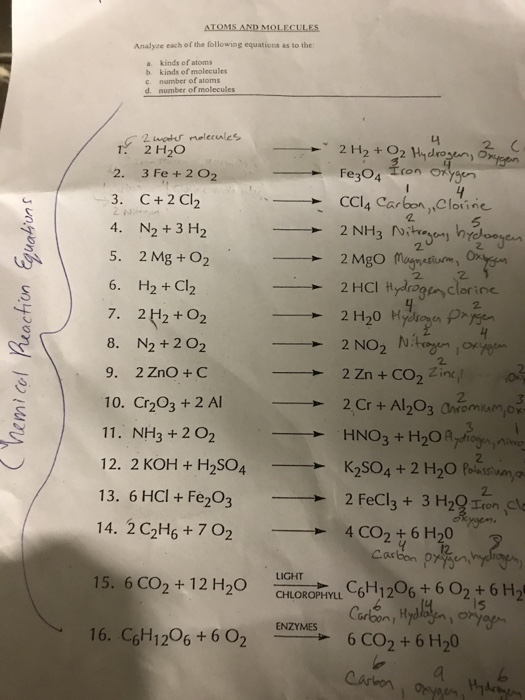 ATOMS AND MOLECULES
Analyze each of the following equations as to the:
a. kinds of atoms
b. kinds of molecules
c. number of atoms
d. number of molecules
Chemical Reaction Equations
2 water molecules
1. 2 H2O → 2 H2 + O2 4 Hydrogen, 2 Oxygen
2. 3 Fe + 2 O2 → Fe3O4 3 Iron 4 Oxygen
3. C + 2 Cl2 → CCl4 1 Carbon, 4 Clorine
4. N2 + 3 H2 → 2 NH3 2 Nitrogen, 5 hydrogen
5. 2 Mg + O2 → 2 MgO 2 Magnesium, 2 Oxygen
6. H2 + Cl2 → 2 HCl 2 Hydrogen, 2 clorine
7. 2 H2 + O2 → 2 H2O 4 Hydrogen 2 Oxygen
8. N2 + 2 O2 → 2 NO2 2 Nitrogen, 4 oxygen
9. 2 ZnO + C → 2 Zn + CO2 2 Zinc,
10. Cr2O3 + 2 Al → 2 Cr + Al2O3 2 Chromium, 3
11. NH3 + 2 O2 → HNO3 + H2O 3 Hydrogen,
12. 2 KOH + H2SO4 → K2SO4 + 2 H2O 2 Potassium,
13. 6 HCl + Fe2O3 → 2 FeCl3 + 3 H2O 2 Iron,
oxygen.
14. 2 C2H6 + 7 O2 → 4 CO2 + 6 H2O
4 Carbon 12 oxygen, hydrogen
15. 6 CO2 + 12 H2O LIGHT → CHLOROPHYLL C6H12O6 + 6 O2 + 6 H2
6 Carbon, 14 Hydrogen, 15 oxygen
16. C6H12O6 + 6 O2 ENZYMES → 6 CO2 + 6 H2O
6 Carbon 9 oxygen, 6